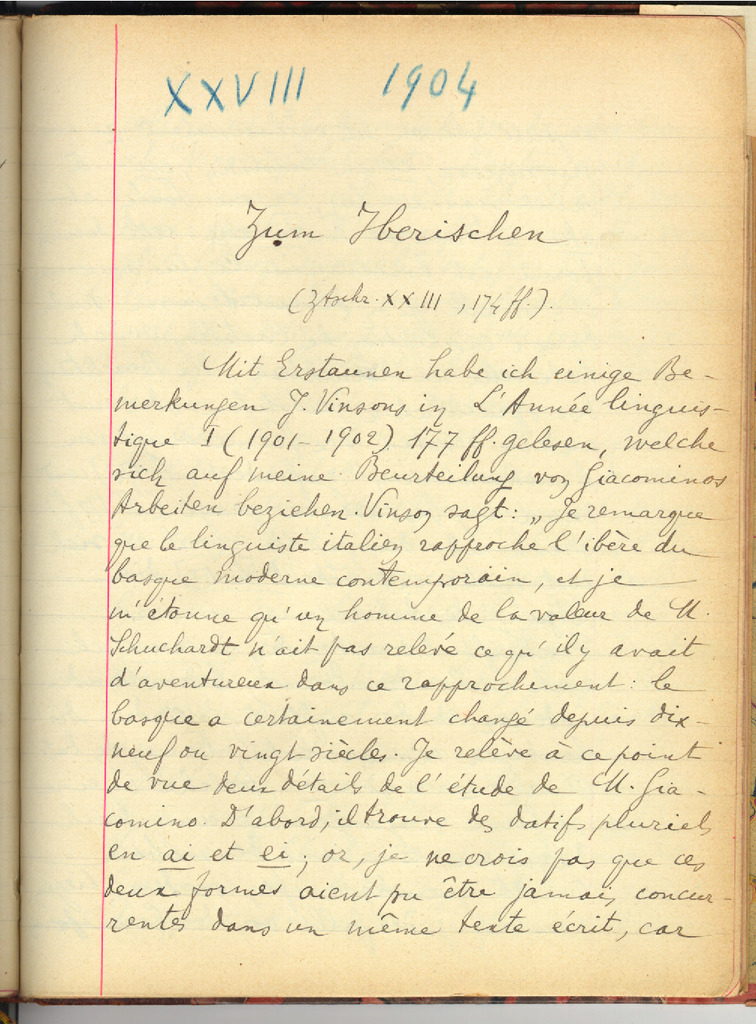 XXVIII 1904
Zum Iberischen
(Ztschr. XXIII, 174 ff.).
Mit Erstaunen habe ich einige Be-
merkungen J. Vinsons in L'Année linguis-
tique I (1901-1902) 177 ff. gelesen, welche
sich auf meine Beurteilung von Giacominos
Arbeiten beziehen. Vinson sagt: „Je remarque
que le linguiste italien rapproche l'ibère du
basque moderne contemporain, et je
m'étonne qu'un homme de la valeur de M.
Schuchardt n'ait pas relevé ce qu'il y avait
d'aventureux dans ce rapprochement: le
basque a certainement changé depuis dix-
neuf ou vingt siècles. Je relève à ce point
de vue deux détails de l'étude de M. Gia-
comino. D'abord, il trouve des datifs pluriels
en ai et ei; or, je ne crois pas que ces
deux formes aient pu être jamais concur-
rentes dans un même texte écrit, car